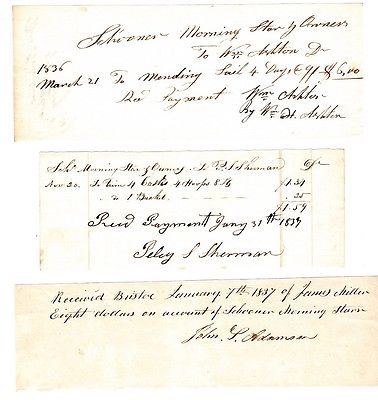 Schooner Morning Star & Owners
To Wm Ashton Dr
1836
March 21 To Mending Sail 4 Days $6,00
Recd Payment Wm Ashton
By Wm H. Ashton
Schr Morning Star & Owners To P. S. Sherman Dr
Nov 20. To Trim 4 Casks 4 Hoops $1.34
" 1 Bucket .25
$1.59
Recd Payment Jany 31th 1837
Peleg S Sherman
Received Bristol January 7th 1837 of James Miller
Eight dollars on account of Schooner Morning Starr
John S. Adamson